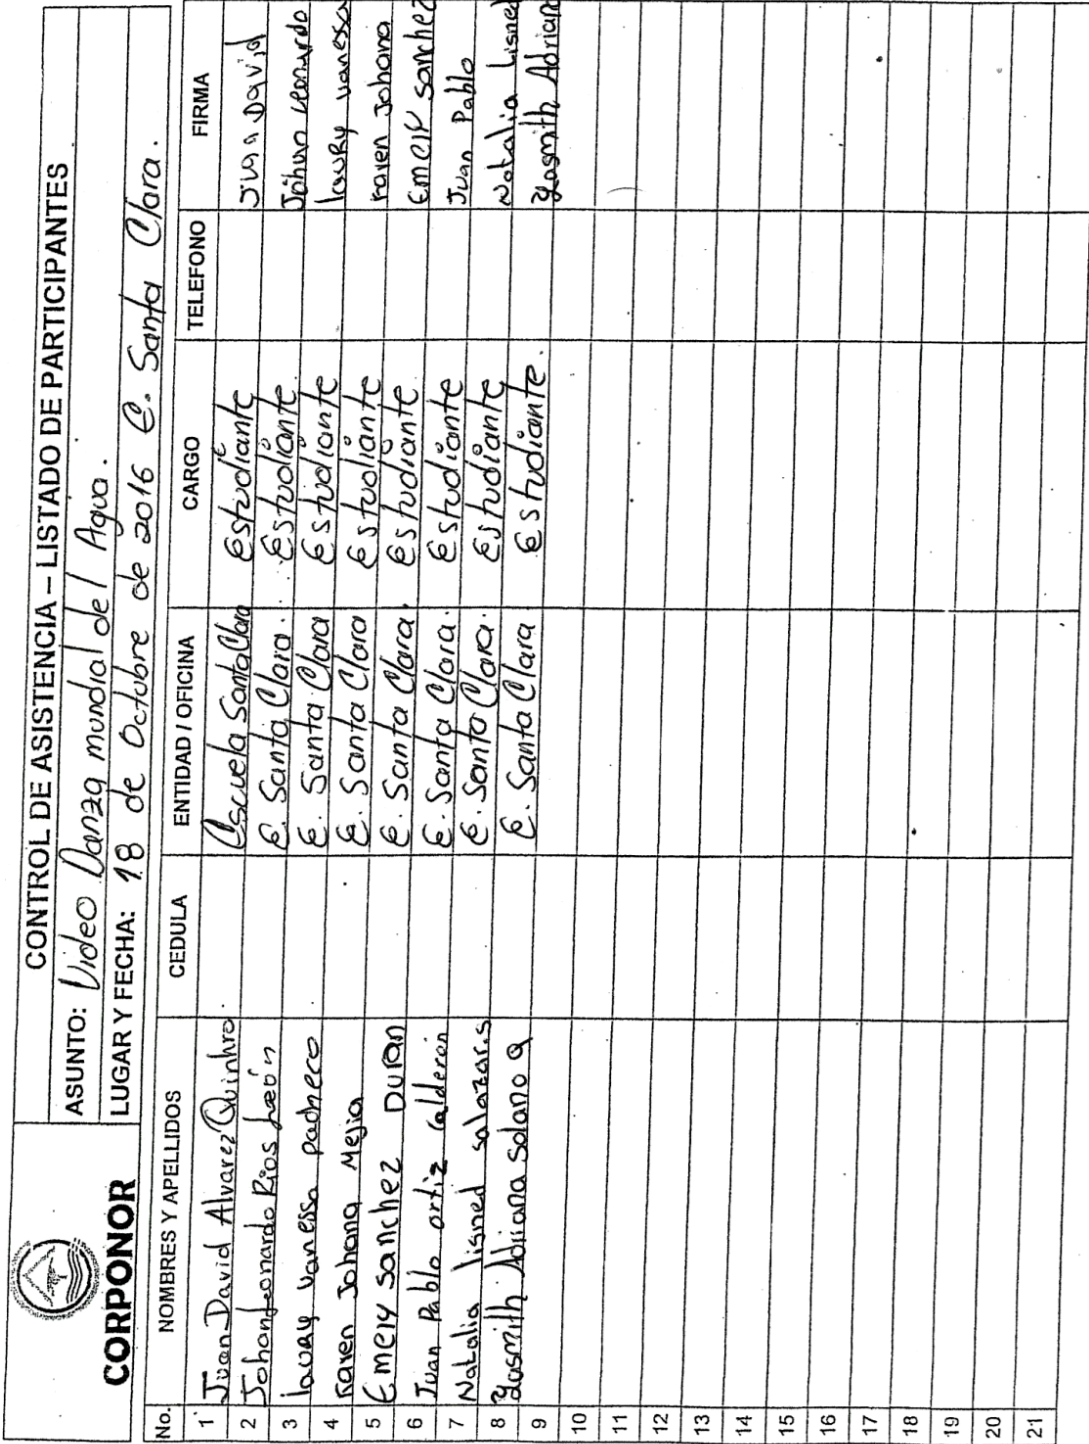 CORPONOR
CONTROL DE ASISTENCIA – LISTADO DE PARTICIPANTES
ASUNTO: Video Danza mundial del Agua.
LUGAR Y FECHA: 18 de Octubre de 2016 E. Santa Clara.
No. NOMBRES Y APELLIDOS CEDULA ENTIDAD / OFICINA CARGO TELEFONO FIRMA
1 Juan David Alvarez Quinhro Escuela Santa Clara Estudiante Juan David
2 Johan Leonardo Rios León E. Santa Clara. Estudiante. Johan Leonardo
3 laury vanessa pacheco E. Santa Clara Estudiante laury vanessa
4 Karen Johana Mejia E. Santa Clara Estudiante Karen Johana
5 Emely sanchez Duran E. Santa Clara. Estudiante. Emely sanchez
6 Juan Pablo ortiz Calderon E. Santa Clara. Estudiante Juan Pablo
7 Natalia lisned salazar.s E. Santa Clara. Estudiante Natalia Lisned
8 Yasmith Adriana Solano Q E. Santa Clara Estudiante. Yasmith Adriana
9
10
11
12
13
14
15
16
17
18
19
20
21